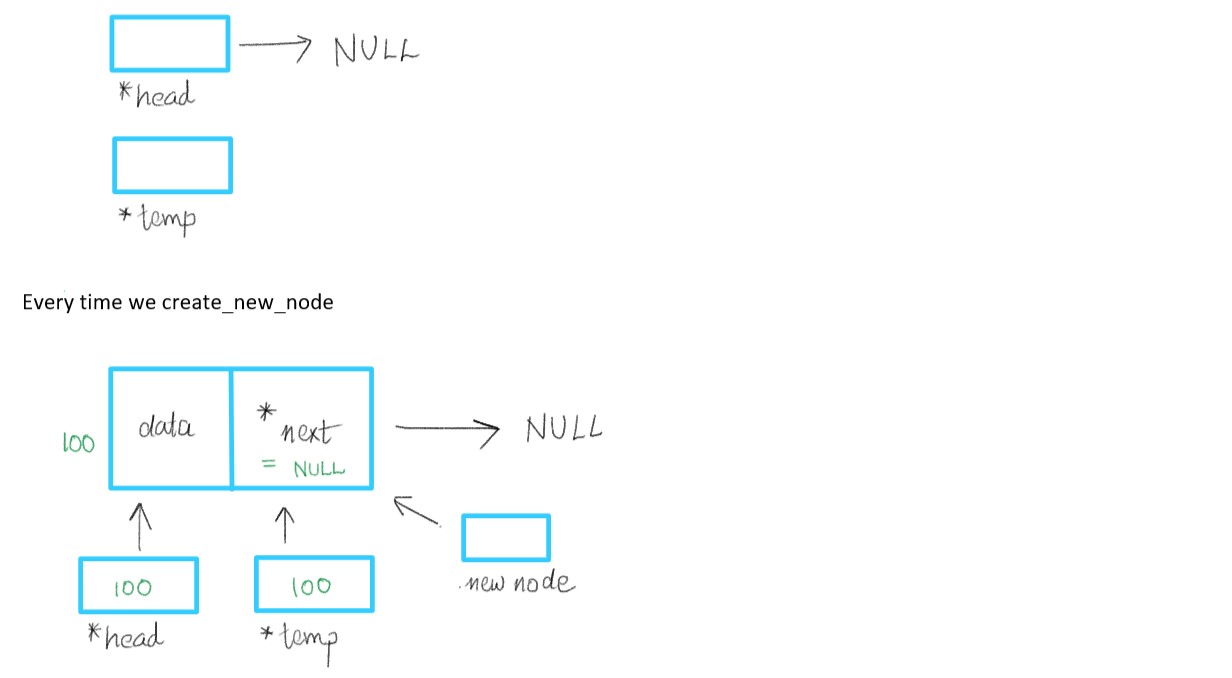 NULL
*head
*temp
Every time we create_new_node
100
data
*
next
= NULL
NULL
100
*head
100
*temp
new node